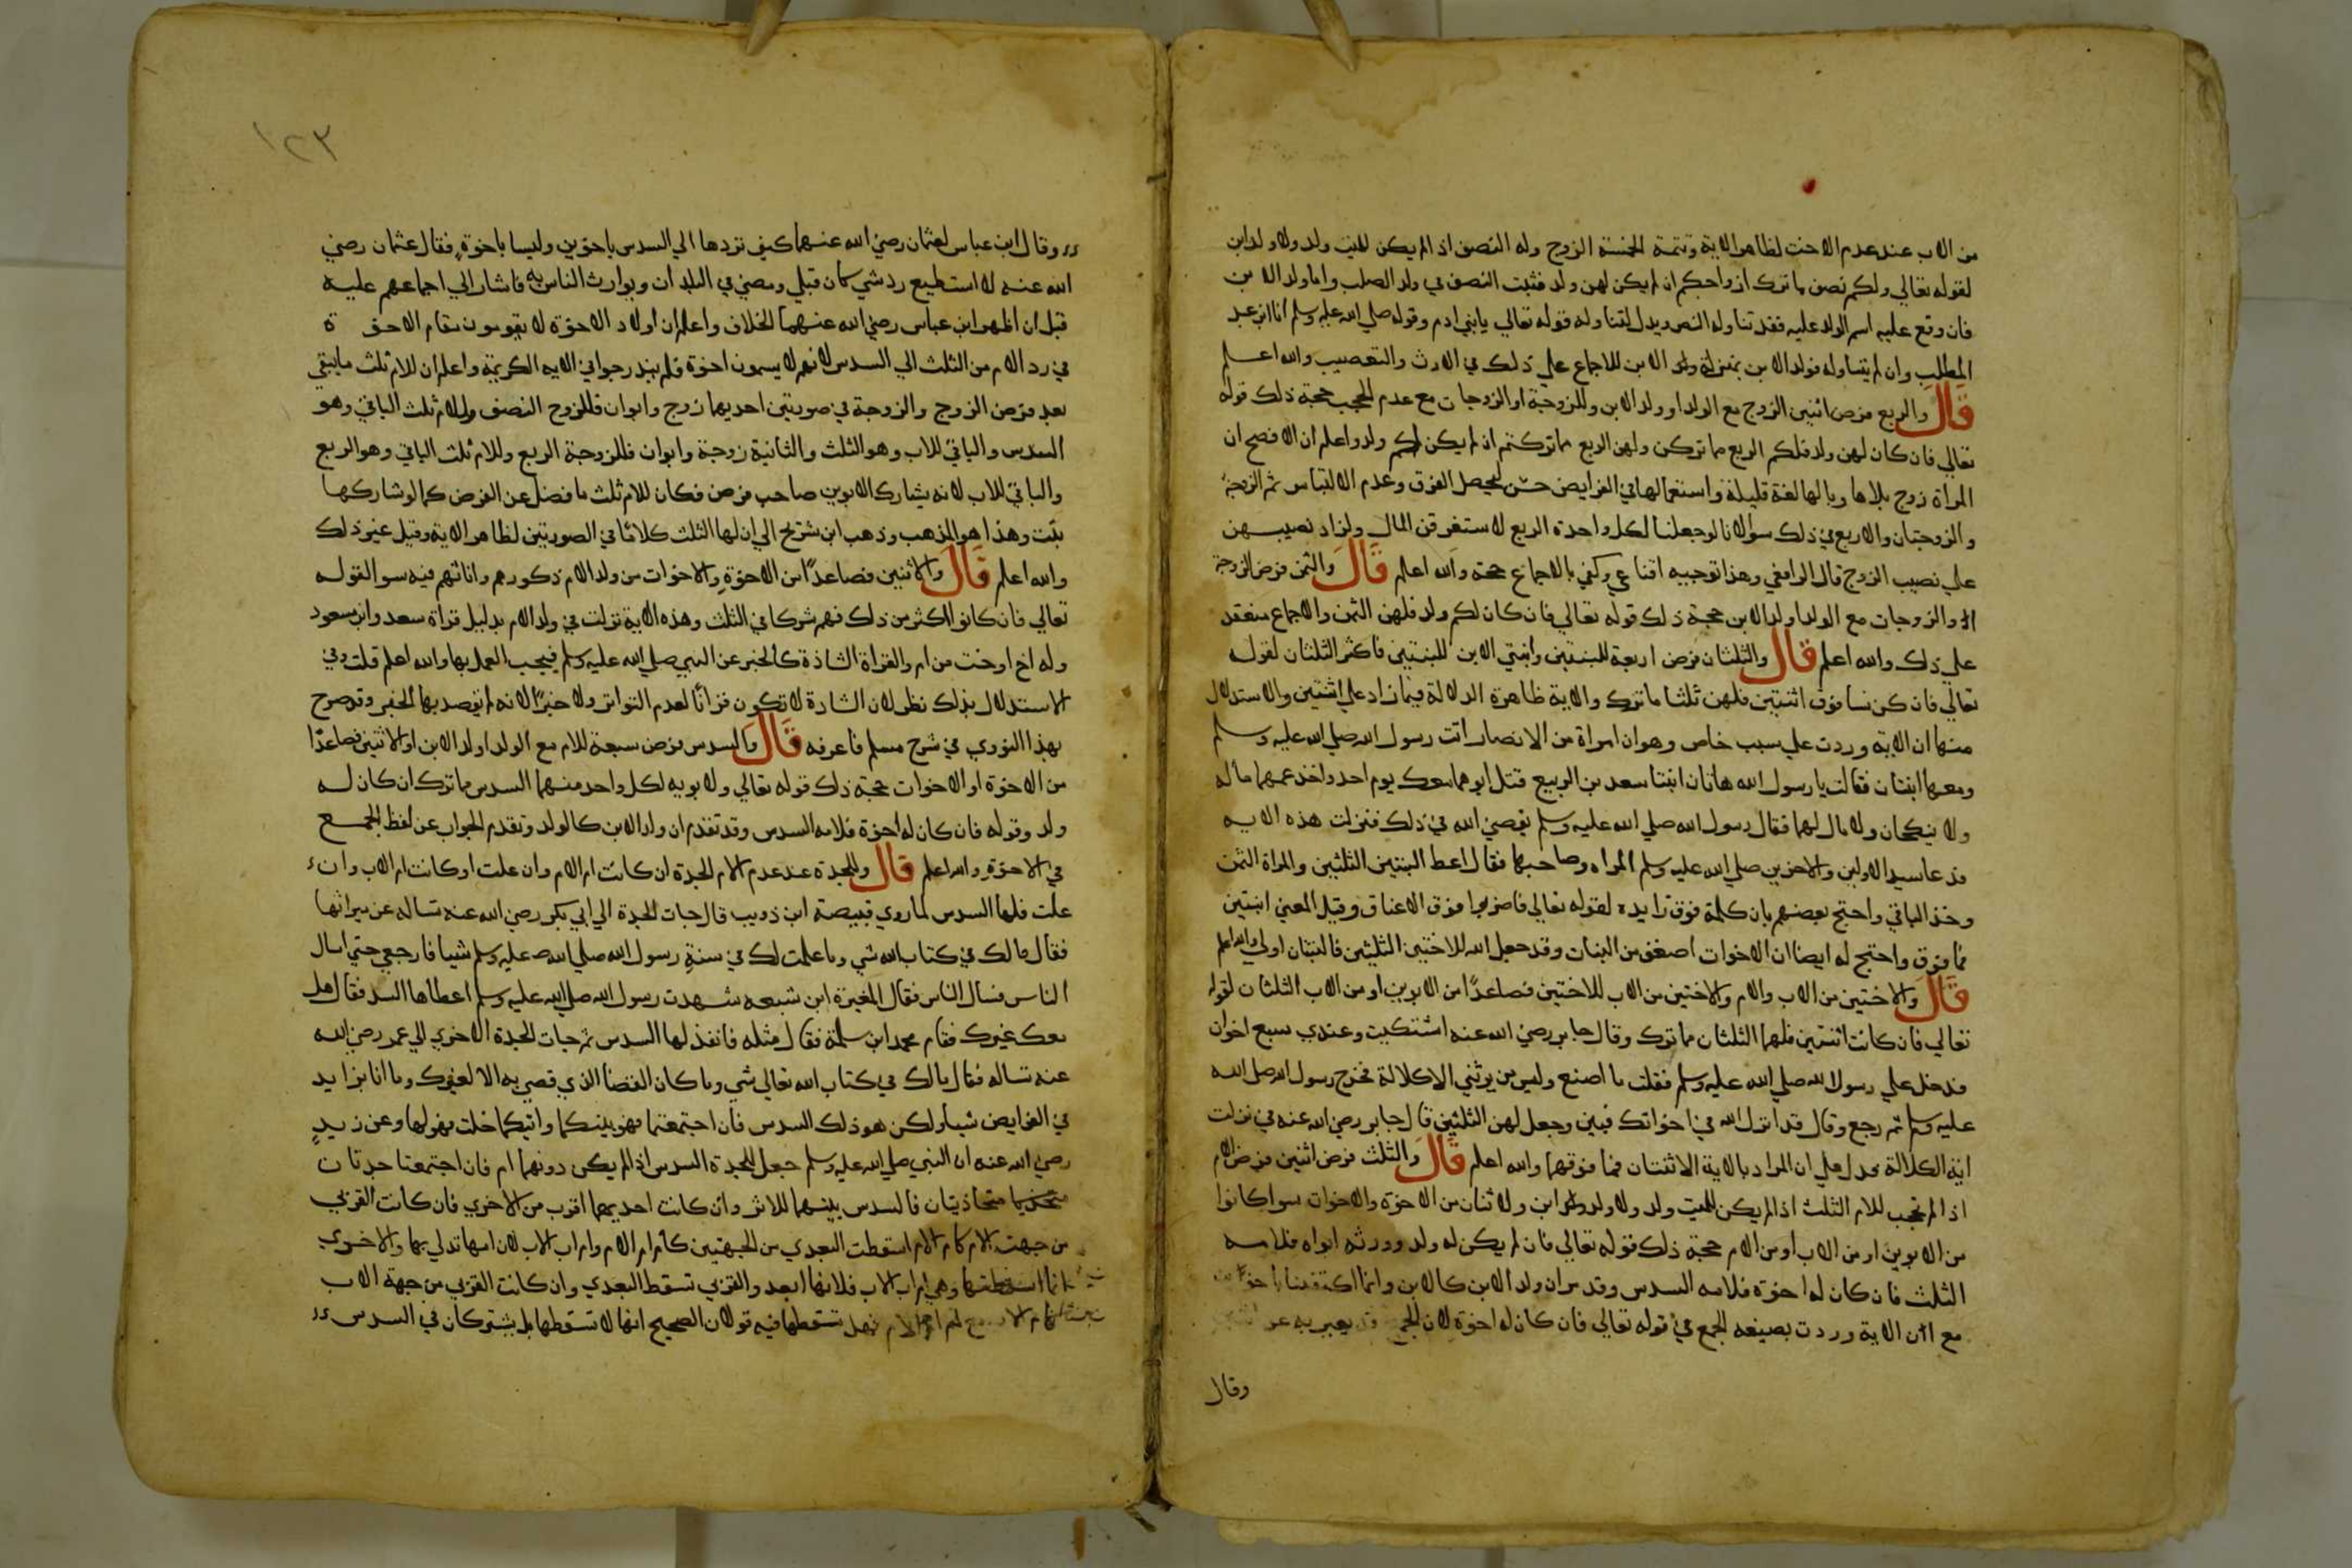 من الاب عند عدم الاخت لظاهر الاية وتتمة الخمسة الزوج وله النصف اذا لم يكن للميت ولد ولا ولد ابن
لقوله تعالي ولكم نصف ما ترك ازواجكم ان لم يكن لهن ولد فثبت النصف في ولد الصلب واما ولد الابن
فان وقع عليه اسم الولد عليه فقد تناوله النص ويدل لتناوله قوله تعالي يابني ادم وقوله صلي الله عليه وسلم انا ابن عبد
المطلب وان لم يتناوله فولد الابن بمنزلة ولد الابن للاجماع علي ذلك في الارث والتعصيب والله اعلم
قال والربع فرض اثنين الزوج مع الولد او ولد الابن وللزوجة او الزوجات مع عدم الحجب حجة ذلك قوله
تعالي فان كان لهن ولد فلكم الربع مما تركن ولهن الربع مما تركتم ان لم يكن لكم ولد واعلم ان الافصح ان
المراة زوج بلا ها وبالها لغة قليلة واستعمالها في الفرايض حسن ليحصل الفرق وعدم الالتباس ثم الزوجة
والزوجتان والاربع في ذلك سوا لانا لو جعلنا لكل واحدة الربع لاستغرقن المال ولزاد نصيبهن
علي نصيب الزوج قال الرافعي وهذا توجيه اقناعي وكفي بالاجماع حجة والله اعلم قال والثمن فرض الزوجة
او الزوجات مع الولد او ولد الابن حجة ذلك قوله تعالي فان كان لكم ولد فلهن الثمن والاجماع منعقد
علي ذلك والله اعلم قال والثلثان فرض اربعة للبنتين وابنتي الابن للبنتين فاكثر الثلثان لقوله
تعالي فان كن نسا فوق اثنتين فلهن ثلثا ما ترك والاية ظاهرة الدلالة فيما زاد علي اثنتين والاستدلال
منها ان الاية وردت علي سبب خاص وهو ان امراة من الانصار اتت رسول الله صلي الله عليه وسلم
ومعها ابنتان فقالت يا رسول الله هاتان ابنتا سعد بن الربيع قتل ابوهما معك يوم احد واخذ عمهما ماله
ولا ينكحان ولا مال لهما فقال رسول الله صلي الله عليه وسلم يقضي الله في ذلك فنزلت هذه الايه
فدعا سيد الاولين والاخرين صلي الله عليه وسلم المراه وصاحبها فقال اعط البنتين الثلثين والمراة الثمن
وخذ الباقي واحتج بعضهم بان كلمة فوق زايدة لقوله تعالي فاضربوا فوق الاعناق وقيل المعني ابنتين
فما فوق واحتج له ايضا ان الاخوات اضعف من البنات وقد جعل الله للاختين الثلثين فالبنتان اولي والله اعلم
قال والاختين من الاب والام والاختين من الاب للاختين فصاعدا من الابوين او من الاب الثلثان لقوله
تعالي فان كانتا اثنتين فلهما الثلثان مما ترك وقال جابر رضي الله عنه اشتكيت وعندي سبع اخوات
فدخل علي رسول الله صلي الله عليه وسلم فقلت ما اصنع وليس من يرثني الا كلالة فخرج رسول الله صلي الله
عليه وسلم ثم رجع وقال قد انزل الله في اخواتك فبين وجعل لهن الثلثين قال جابر رضي الله عنه في نزلت
اية الكلالة فدل علي ان المراد بالاية الاثنتان فما فوقهما والله اعلم قال والثلث فرض اثنين فرض الام
اذا لم تحجب للام الثلث اذا لم يكن للميت ولد ولا ولد ابن ولا اثنان من الاخوة والاخوات سوا كانوا
من الابوين او من الاب او من الام حجة ذلك قوله تعالي فان لم يكن له ولد وورثه ابواه فلامه
الثلث فان كان له اخوة فلامه السدس وقد مر ان ولد الابن كالابن وانما اكتفينا
مع ان الاية وردت بصيغه الجمع في قوله تعالي فان كان له اخوة لان الجمع قد يعبر به عن
وقال
١٢٣
وقال ابن عباس لعثمان رضي الله عنهما كيف تردها الي السدس باخوين وليسا باخوة فقال عثمان رضي
الله عنه لا استطيع رد شي كان قبلي ومضي في البلدان وتوارث الناس به فاشار الي اجماعهم عليه
قبل ان اظهر ابن عباس رضي الله عنهما الخلاف واعلم ان اولاد الاخوة لا يقومون مقام الاخوة
في رد الام من الثلث الي السدس لانهم لا يسمون اخوة فلم يندرجوا في الايه الكريمة واعلم ان للام ثلث ما يبقي
بعد فرض الزوج والزوجة في صورتين احديهما زوج وابوان فللزوج النصف وللام ثلث الباقي وهو
السدس والباقي للاب وهو الثلث والثانية زوجة وابوان فللزوجة الربع وللام ثلث الباقي وهو الربع
والباقي للاب لانه يشارك الابوين صاحب فرض فكان للام ثلث ما فضل عن الفرض كما لو شاركها
بنت وهذا هو المذهب وذهب ابن شريح الي ان لها الثلث كلاما في الصورتين لظاهر الاية وقيل غير ذلك
والله اعلم قال والاثنين فصاعدا من الاخوة والاخوات من ولد الام ذكورهم واناثهم فيه سوا لقوله
تعالي فان كانوا اكثر من ذلك فهم شركا في الثلث وهذه الاية نزلت في ولد الام بدليل قراة سعد وابن مسعود
وله اخ او اخت من ام والقراة الشاذة كالخبر عن النبي صلي الله عليه وسلم فيجب العمل بها والله اعلم قلت وفي
الاستدلال بذلك نظر لان الشاذة لا تكون قرانا لعدم التواتر ولا خبرا لانه لم يقصد بها الخبر وقد صرح
بهذا النووي في شرح مسلم فاعرفه قال والسدس فرض سبعة للام مع الولد او ولد الابن او الاثنين فصاعدا
من الاخوة او الاخوات حجة ذلك قوله تعالي ولابويه لكل واحد منهما السدس مما ترك ان كان له
ولد وقوله فان كان له اخوة فلامه السدس وقد تقدم ان ولد الابن كالولد وتقدم الجواب عن لفظ الجمع
في الاخوة والله اعلم قال وللجدة عند عدم الام الجدة ان كانت ام الام وان علت او كانت ام الاب وان
علت فلها السدس لما روي قبيصة ابن ذويب قال جات الجدة الي ابي بكر رضي الله عنه تساله عن ميراثها
فقال مالك في كتاب الله شي وما علمت لك في سنة رسول الله صلي الله عليه وسلم شيا فارجعي حتي اسال
الناس فسال الناس فقال المغيرة ابن شبعه شهدت رسول الله صلي الله عليه وسلم اعطاها السدس فقال هل
معك غيرك فقام محمد ابن سلمة فقال مثله فانفذ لها السدس ثم جات الجدة الاخري الي عمر رضي الله
عنه تساله فقال مالك في كتاب الله تعالي شي وما كان القضا الذي قضي به الا لغيرك وما انا بزايد
في الفرايض شيا ولكن هو ذلك السدس فان اجتمعتما فهو بينكما وايتكما خلت فهو لها وعن زيد
رضي الله عنه ان النبي صلي الله عليه وسلم جعل للجدة السدس اذا لم يكن دونها ام فان اجتمعتا جدتان
متحاذيتان فالسدس بينهما للاثر وان كانت احديهما اقرب من الاخري فان كانت القربي
من جهت الام كام الام اسقطت البعدي من الجهتين كام ام الام وام اب الاب لان امها تدلي بها والاخري
انما اسقطتها وهي ام اب الاب فلانها ابعد والقربي تسقط البعدي وان كانت القربي من جهة الاب
كام الاب مع ام ام الام فهل تسقطها فيه قولان الصحيح انها لا تسقطها بل يشتركان في السدس